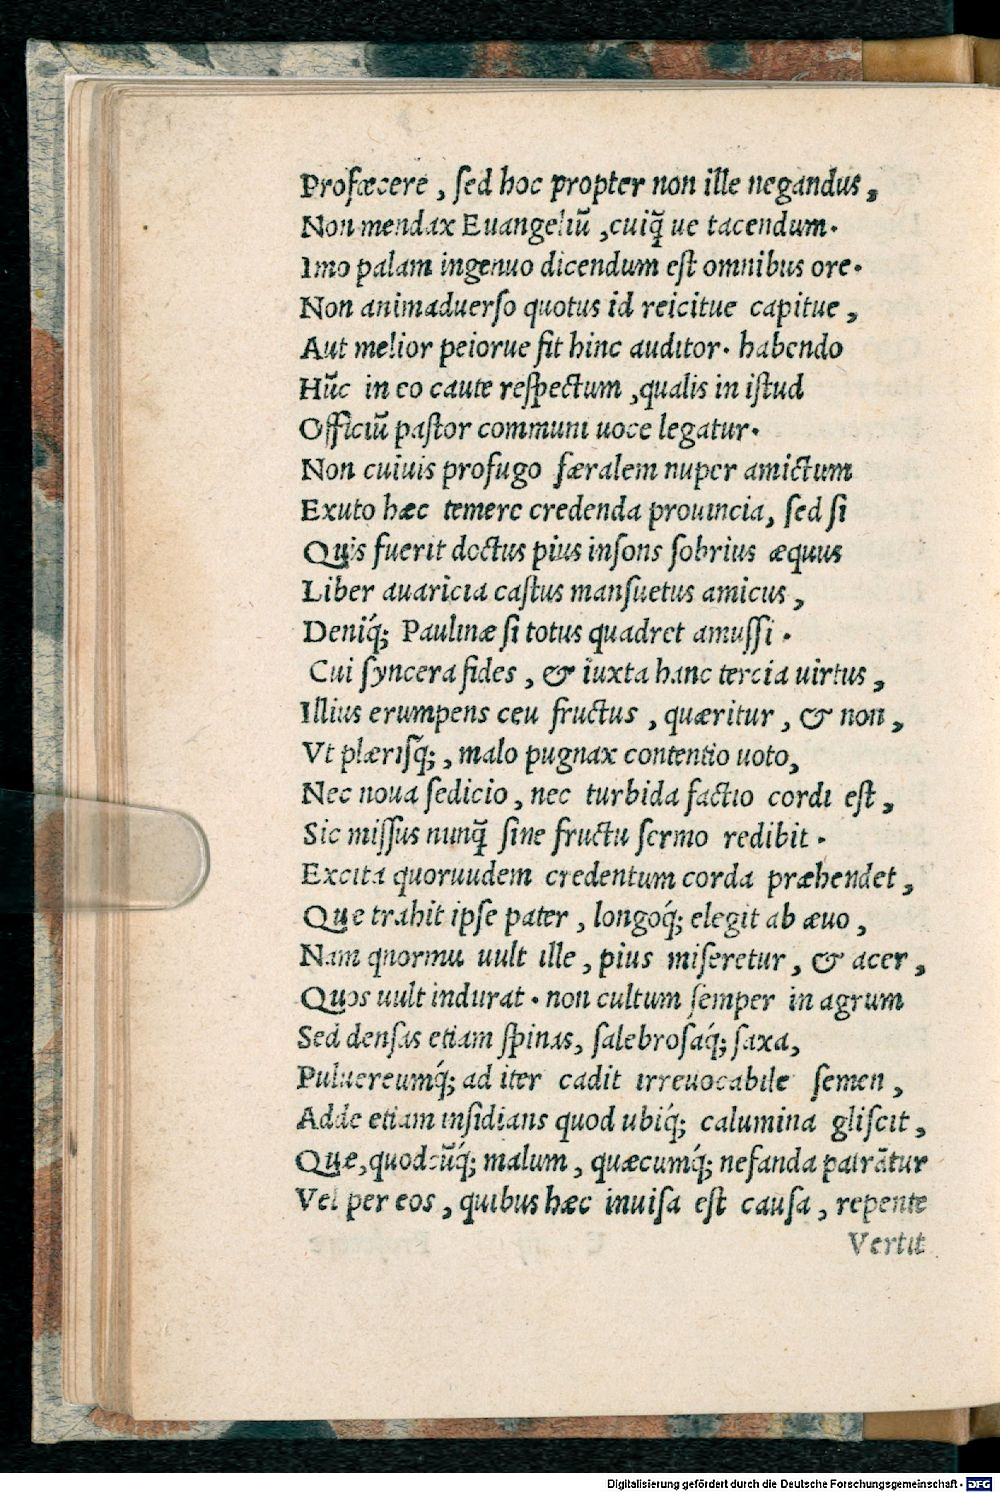 Profæcere, sed hoc propter non ille negandus,
Non mendax Euangeliū, cuiq̃ ue tacendum.
Imo palam ingenuo dicendum est omnibus ore.
Non animaduerso quotus id reicitue capitue,
Aut melior peiorue fit hinc auditor. habendo
Hūc in eo caute respectum, qualis in istud
Officiū pastor communi uoce legatur.
Non cuiuis profugo færalem nuper amictum
Exuto hæc temere credenda prouincia, sed si
Quis fuerit doctus pius insons sobrius æquus
Liber auaricia castus mansuetus amicus,
Deniq́; Paulinæ si totus quadret amussi.
Cui syncera fides, & iuxta hanc tercia uirtus,
Illius erumpens ceu fructus, quæritur, & non,
Vt plærisq̃;, malo pugnax contentio uoto,
Nec noua sedicio, nec turbida factio cordi est,
Sic missus nunq̃ sine fructu sermo redibit.
Excita quoruudem credentum corda præhendet,
Que trahit ipse pater, longoq́; elegit ab æuo,
Nam qnormu uult ille, pius miseretur, & acer,
Quos uult indurat. non cultum semper in agrum
Sed densas etiam spinas, salebrosaq́; saxa,
Puluereumq́; ad iter cadit irreuocabile semen,
Adde etiam insidians quod ubiq́; calumina gliscit,
Que, quodcūq́; malum, quæcumq́; nefanda patrātur
Vel per eos, quibus hæc inuisa est causa, repente
Vertit
Digitalisierung gefördert durch die Deutsche Forschungsgemeinschaft - DFG